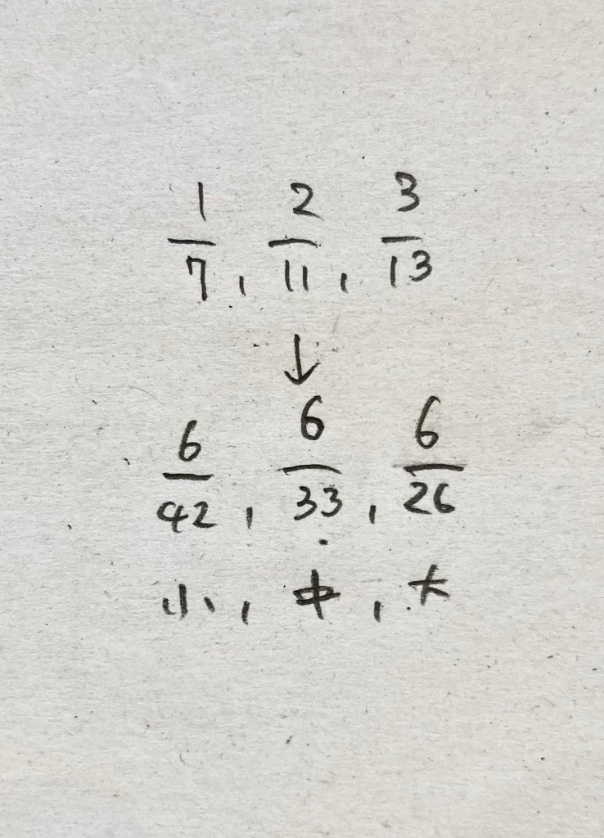 1/7, 2/11, 3/13
↓
6/42, 6/33, 6/26
小, 中, 大